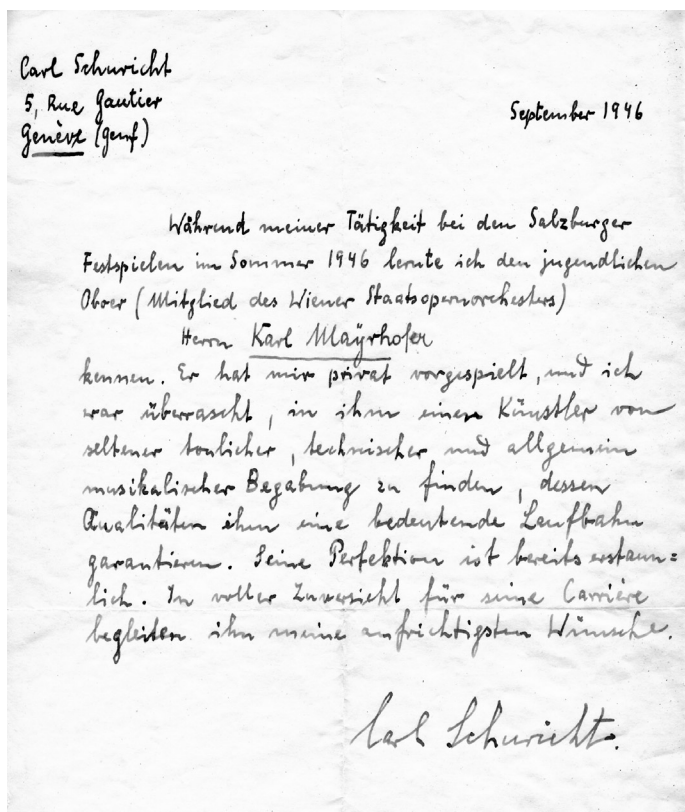 Carl Schuricht
5, Rue Gautier
Genève (Genf)
September 1946
Während meiner Tätigkeit bei den Salzburger
Festspielen im Sommer 1946 lernte ich den jugendlichen
Oboer (Mitglied des Wiener Staatsopernorchesters)
Herrn Karl Mayrhofer
kennen. Er hat mir privat vorgespielt, und ich
war überrascht, in ihm einen Künstler von
seltener tonlicher, technischer und allgemein
musikalischer Begabung zu finden, dessen
Qualitäten ihm eine bedeutende Laufbahn
garantieren. Seine Perfektion ist bereits erstaun=
lich. In voller Zuversicht für seine Carrière
begleiten ihn meine aufrichtigsten Wünsche.
Carl Schuricht.